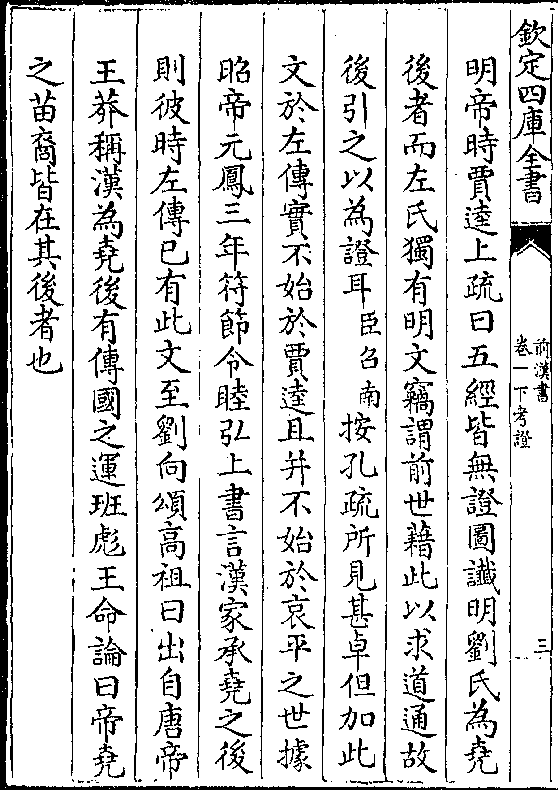 欽定四庫全書
前漢書
卷一下考證
三
明帝時賈逵上疏曰五經皆無證圖讖明劉氏為堯
後者而左氏獨有明文竊謂前世藉此以求道通故
後引之以為證耳臣召南按孔疏所見甚卓但加此
文於左傳實不始於賈逵且并不始於哀平之世據
昭帝元鳳三年符節令眭弘上書言漢家承堯之後
則彼時左傳已有此文至劉向頌高祖曰出自唐帝
王莽稱漢為堯後有傳國之運班彪王命論曰帝堯
之苗裔皆在其後者也